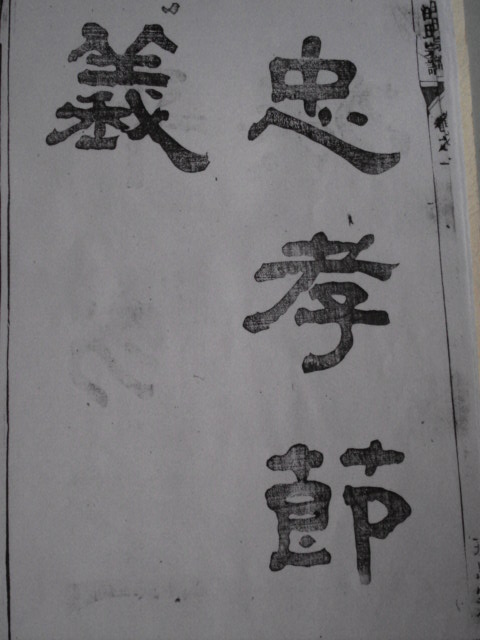 忠孝節
義